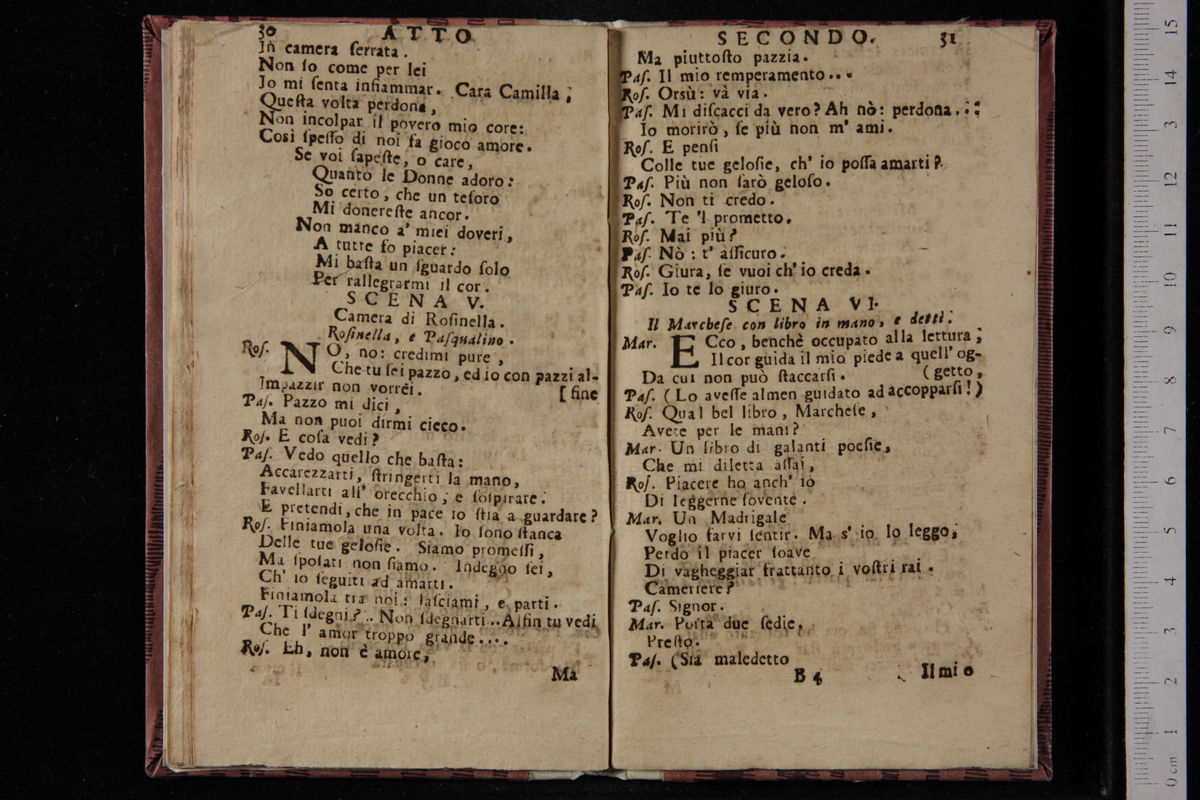 30 ATTO
In camera ſerrata.
Non ſo come per lei
Io mi ſenta infiammar. Cara Camilla;
Queſta volta perdona,
Non incolpar il povero mio core:
Così ſpeſſo di noi fa gioco amore.
Se voi ſapeſte, o care,
Quanto le Donne adoro:
So certo, che un teſoro
Mi donereſte ancor.
Non manco a' miei doveri,
A tutte fo piacer:
Mi baſta un ſguardo ſolo
Per rallegrarmi il cor.
SCENA V.
Camera di Roſinella.
Roſinella, e Paſqualino.
Roſ. NO, no: credimi pure,
Che tu ſei pazzo, ed io con pazzi al-
Impazzir non vorrei. [fine
Paſ. Pazzo mi dici,
Ma non puoi dirmi cieco.
Roſ. E coſa vedi?
Paſ. Vedo quello che baſta:
Accarezzarti, ſtringerti la mano,
Favellarti all' orecchio, e ſoſpirare.
E pretendi, che in pace io ſtia a guardare?
Roſ. Finiamola una volta. Io ſono ſtanca
Delle tue geloſie. Siamo promeſſi,
Ma ſpoſati non ſiamo. Indegno ſei,
Ch' io ſeguiti ad amarti.
Finiamola tra noi: laſciami, e parti.
Paſ. Ti ſdegni?.. Non ſdegnarti.. Alfin tu vedi
Che l' amor troppo grande....
Roſ. Eh, non è amore,
Ma
SECONDO. 31
Ma piuttoſto pazzia.
Paſ. Il mio remperamento...
Roſ. Orsù: và via.
Paſ. Mi diſcacci da vero? Ah nò: perdona...:
Io morirò, ſe più non m' ami.
Roſ. E penſi
Colle tue geloſie, ch' io poſſa amarti?
Paſ. Più non ſarò geloſo.
Roſ. Non ti credo.
Paſ. Te 'l prometto.
Roſ. Mai più?
Paſ. Nò: t' aſſicuro.
Roſ. Giura, ſe vuoi ch' io creda.
Paſ. Io te lo giuro.
SCENA VI.
Il Marcheſe con libro in mano, e detti.
Mar. ECco, benchè occupato alla lettura;
Il cor guida il mio piede a quell' og-
Da cui non può ſtaccarſi. (getto,
Paſ. (Lo aveſſe almen guidato ad accopparſi!)
Roſ. Qual bel libro, Marcheſe,
Avete per le mani?
Mar. Un libro di galanti poeſie,
Che mi diletta aſſai,
Roſ. Piacere ho anch' io
Di leggerne ſovente.
Mar. Un Madrigale
Voglio farvi ſentir. Ma s' io lo leggo,
Perdo il piacer ſoave
Di vagheggiar frattanto i voſtri rai.
Cameriere?
Paſ. Signor.
Mar. Porta due ſedie,
Preſto.
Paſ. (Sia maledetto
B 4 Il mio